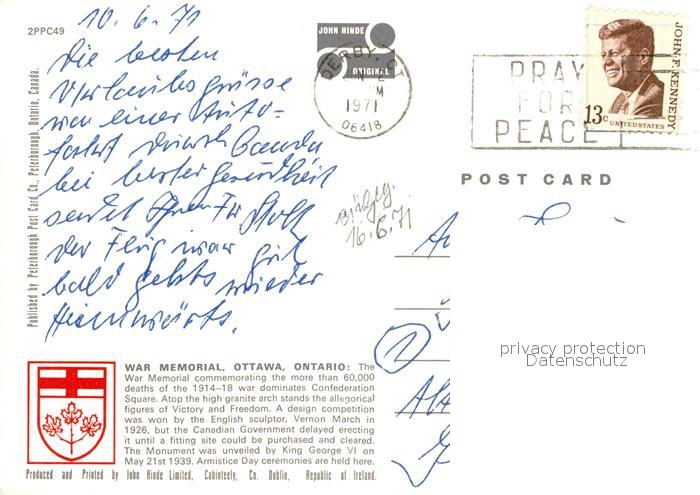 2PPC49
10.6.71
Die besten
Urlaubsgrüsse
von einer Auto-
fahrt durch Canada
bei bester Gesundheit
sendet Ihnen Fr
der Flug war gut
bald gehts wieder
Heimwärts.
Published by Peterborough Post Card Co., Peterborough, Ontario, Canada.
JOHN HINDE
ORIGINAL
DERBY, CT
1971
06418
PRAY
FOR
PEACE
JOHN F. KENNEDY
13c
UNITED STATES
POST CARD
16.6.71
privacy protection
Datenschutz
WAR MEMORIAL, OTTAWA, ONTARIO: The
War Memorial commemorating the more than 60,000
deaths of the 1914–18 war dominates Confederation
Square. Atop the high granite arch stands the allegorical
figures of Victory and Freedom. A design competition
was won by the English sculptor, Vernon March in
1926, but the Canadian Government delayed erecting
it until a fitting site could be purchased and cleared.
The Monument was unveiled by King George VI on
May 21st 1939. Armistice Day ceremonies are held here.
Produced and Printed by John Hinde Limited, Cabinteely, Co. Dublin, Republic of Ireland.